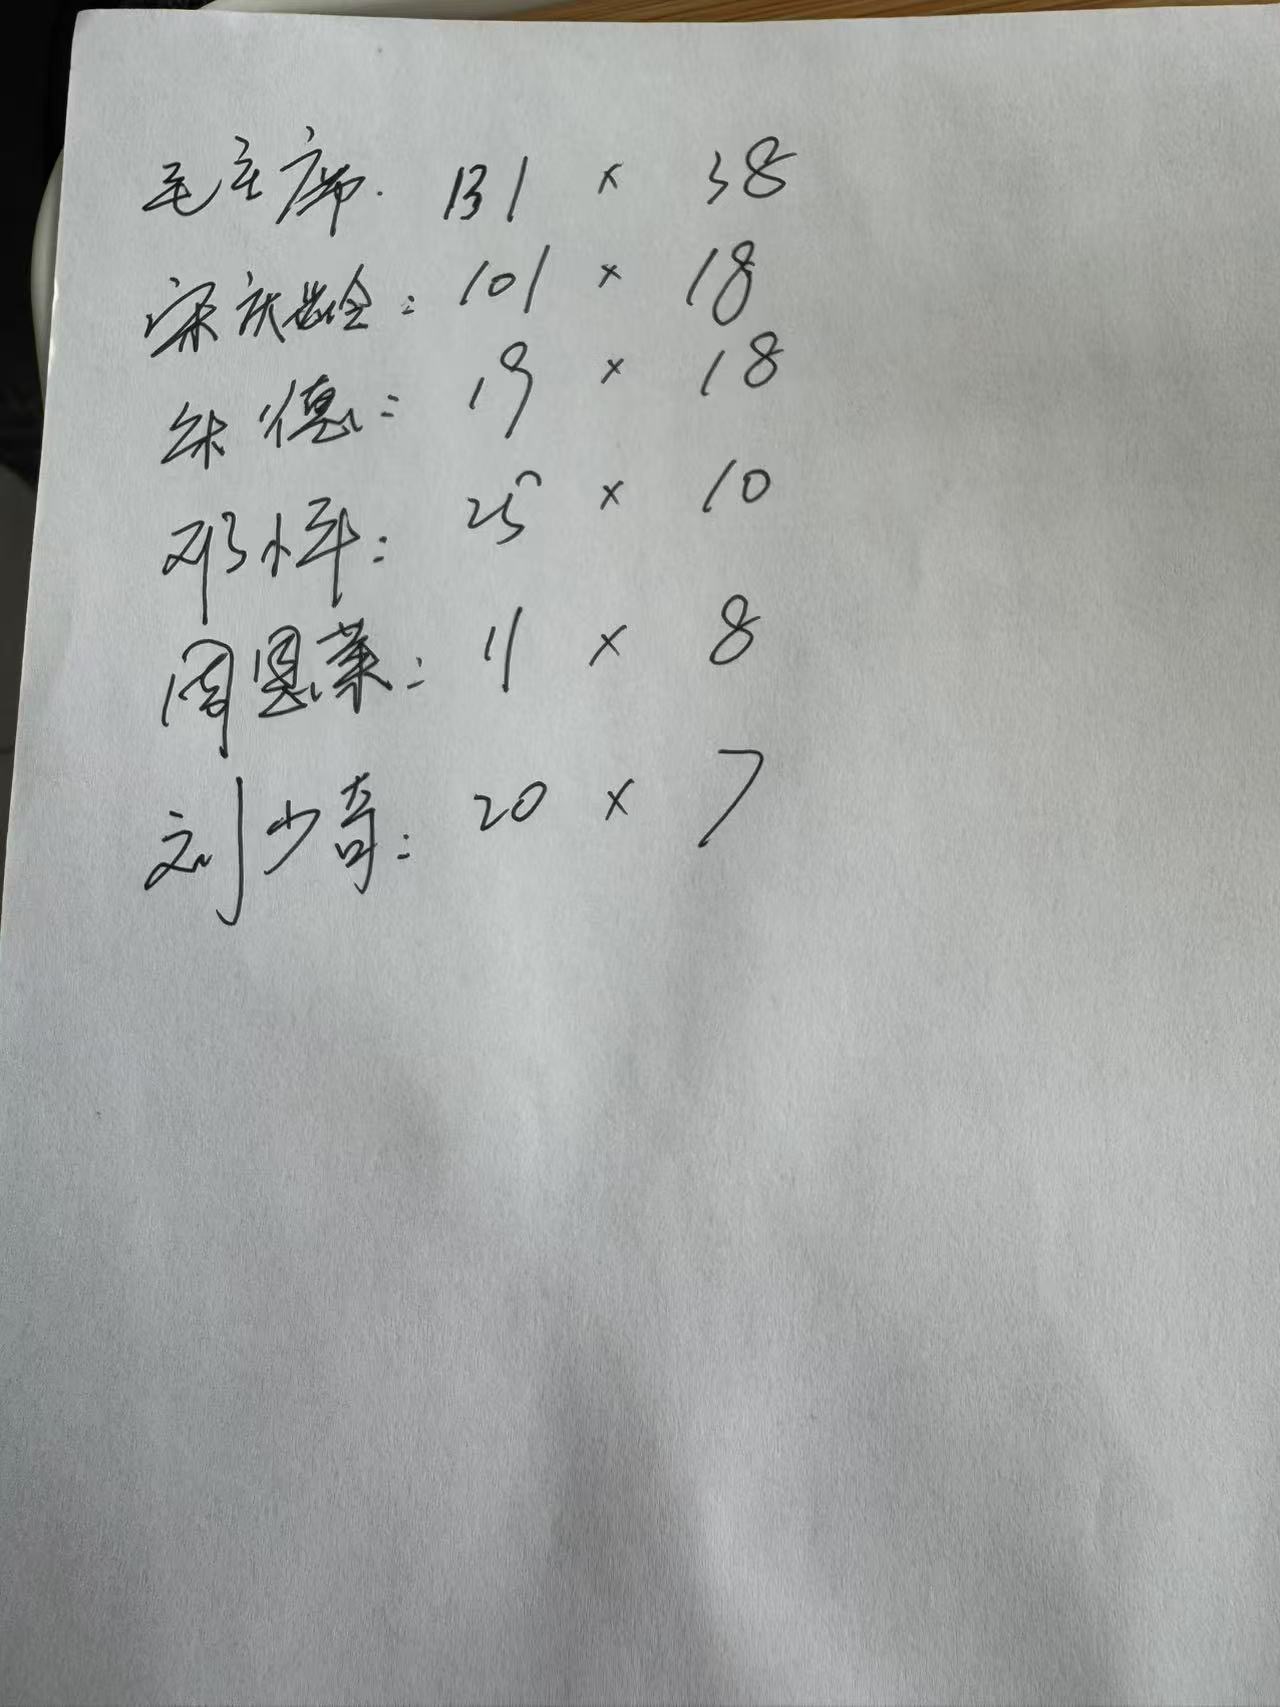 毛主席. 131 × 38
宋庆龄: 101 × 18
朱德: 19 × 18
邓小平: 25 × 10
周恩莱: 11 × 8
刘少奇: 20 × 7